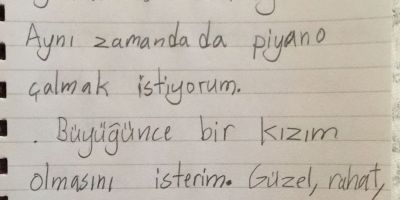 Aynı zamanda da piyano
çalmak istiyorum.
. Büyüğünce bir kızım
olmasını isterim. Güzel, rahat,